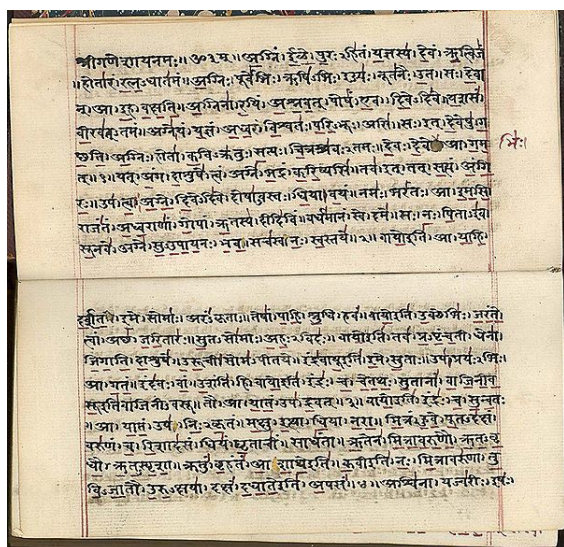 श्रीगणेशायनमः॥ॐ॥ अग्निं। ईळे। पुरःऽहितं। यज्ञस्य। देवं। ऋत्विजं
। होतारं। रत्नऽधातमं॥ अग्निः। पूर्वेभिः। ऋषिऽभिः। ईड्यः। नूतनैः। उत। सः। देवा
न्। आ। इह। वक्षति॥ अग्निना। रयिं। अश्नवत्। पोषं। एव। दिवेऽदिवे। यशसं
वीरवत्ऽतमं॥ अग्ने। यं। यज्ञं। अध्वरं। विश्वतः। परिऽभूः। असि। सः। इत्। देवेषु। ग
च्छति॥ अग्निः। होता। कविऽक्रतुः। सत्यः। चित्रश्रवःऽतमः। देवः। देवे। आ। गम
भिः।
त्॥१॥ यत्। अंग। दाशुषे। त्वं। अग्ने। भद्रं। करिष्यसि। तव। इत्। तत्। सत्यं। अंगि
रः॥ उप। त्वा। अग्ने। दिवेऽदिवे। दोषाऽवस्तः। धिया। वयं। नमः। भरंतः। आ। इमसि
राजंतं। अध्वराणां। गोपां। ऋतस्य। दीदिविं। वर्धमानं। स्वे। दमे॥ सः। नः। पिताऽइव
सूनवे। अग्ने। सुऽउपायनः। भव। सचस्व। नः। स्वस्तये॥२॥ वायोइति। आ। याहि।
दर्शत। इमे। सोमाः। अरंऽकृताः। तेषां। पाहि। श्रुधि। हवं॥ वायोइति। उक्थेभिः। जरंते
त्वां। अच्छ। जरितारः। सुतऽसोमाः। अहःऽविदः॥ वायोइति। तव। प्रऽपृंचती। धेना
जिगाति। दाशुषे। उरूची। सोमऽपीतये॥ इंद्रवायूइति। इमे। सुताः। उप। प्रयःऽभिः।
आ। गतं। इंदवः। वां। उशंति। हि॥ वायोइति। इंद्रः। च। चेतथः। सुतानां। वाजिनीव
सूइतिवाजिनीऽवसू। तौ। आ। यातं। उप। द्रवत्॥३॥ वायोइति। इंद्रः। च। सुन्वतः
। आ। यातं। उप। निःऽकृतं। मक्षु। इत्था। धिया। नरा॥ मित्रं। हुवे। पूतऽदक्षं।
वरुणं। च। रिशादसं। धियं। घृताचीं। साधंता॥ ऋतेन। मित्रावरुणौ। ऋतऽवृ
धौ। ऋतऽस्पृशा। क्रतुं। बृहंतं। आशाथेइति॥ कवीइति। नः। मित्रावरुणा। तु
विऽजातौ। उरुऽक्षया। दक्षं। दधातेइति। अपसं॥४॥ अश्विना। यज्वरीः। इषः।